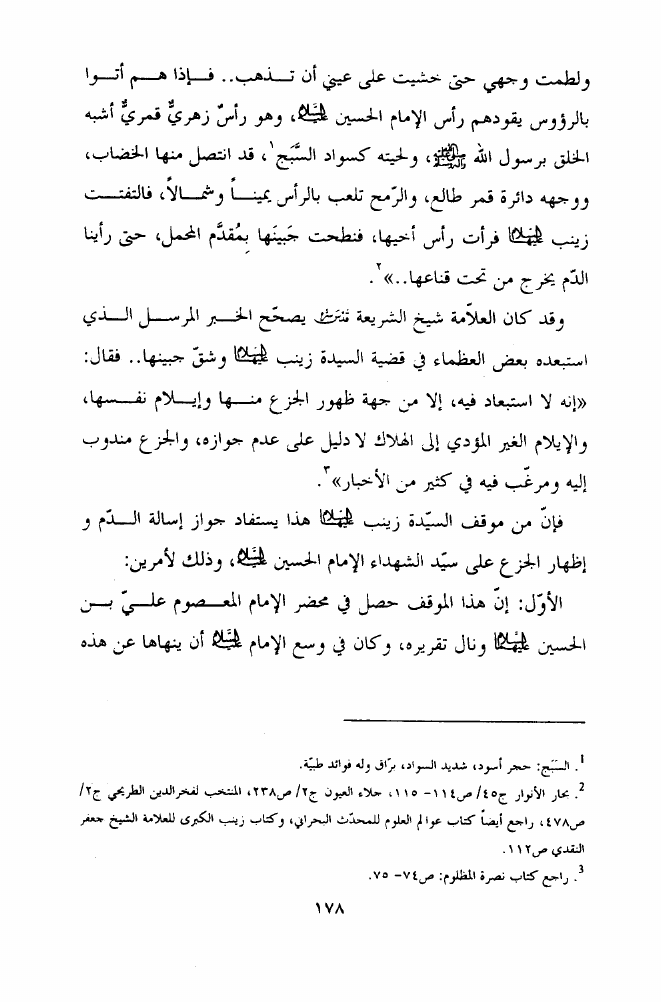 ولطمت وجهي حتى خشيت على عيني أن تـذهب.. فـإذا هـم أتـوا
بالرؤوس يقودهم رأس الإمام الحسين عليه السلام، وهو رأسٌ زهريٌّ قمريٌّ أشبه
الخلق برسول الله صلى الله عليه وآله، ولحيته كسواد السَّبَج١، قد انتصل منها الخضاب،
ووجهه دائرة قمر طالع، والرّمح تلعب بالرأس يمينـاً وشمـالاً، فالتفتـت
زينب عليها السلام فرأت رأس أخيها، فنطحت جَبينَها بِمُقدَّم المحمل، حتى رأينا
الدّم يخرج من تحت قناعها..»٢.
وقد كان العلاّمة شيخ الشريعة قدس سره يصحّح الخـبر المرسـل الـذي
استبعده بعض العظماء في قضية السيدة زينب عليها السلام وشقّ جبينها.. فقال:
«إنه لا استبعاد فيه، إلا من جهة ظهور الجزع منـها وإيـلام نفـسها،
والإيلام الغير المؤدي إلى الهلاك لا دليل على عدم جوازه، والجزع مندوب
إليه ومرغّب فيه في كثير من الأخبار»٣.
فإنّ من موقف السيّدة زينب عليها السلام هذا يستفاد جواز إسالة الـدّم و
إظهار الجزع على سيّد الشهداء الإمام الحسين عليه السلام، وذلك لأمرين:
الأوّل: إنّ هذا الموقف حصل في محضر الإمام المعـصوم علـيّ بـن
الحسين عليهما السلام ونال تقريره، وكان في وسع الإمام عليه السلام أن ينهاها عن هذه
1. السَّبَج: حجر أسود، شديد السواد، برّاق وله فوائد طبيّة.
2. بحار الأنوار ج٤٥/ ص١١٤- ١١٥، جلاء العيون ج٢/ ص٢٣٨، المنتخب لفخرالدين الطريحي ج٢/
ص٤٧٨، راجع أيضاً كتاب عوالم العلوم للمحدّث البحراني، وكتاب زينب الكبرى للعلامة الشيخ جعفر
النقدي ص١١٢.
3. راجع كتاب نصرة المظلوم: ص٧٤- ٧٥.
١٧٨